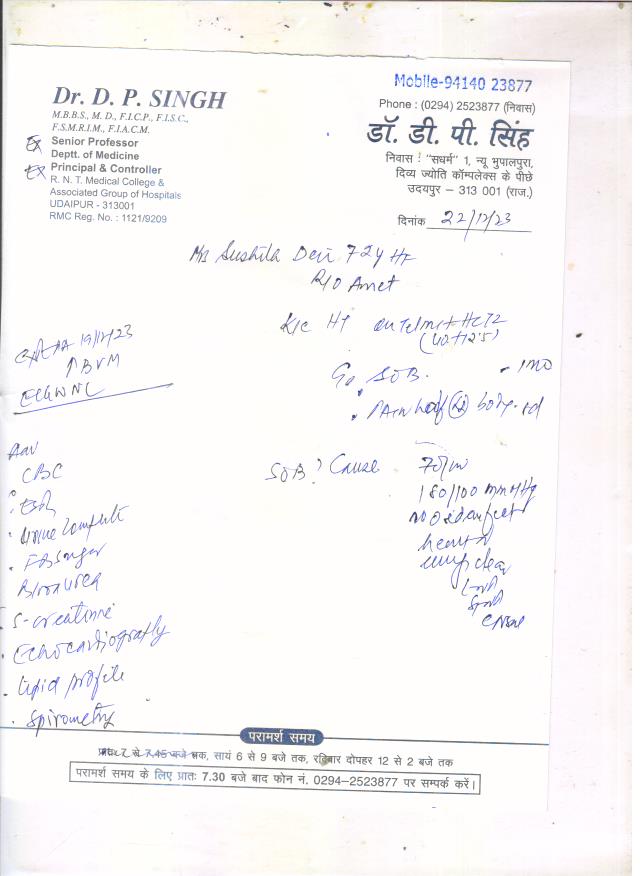 Mobile-94140 23877
Dr. D. P. SINGH
M.B.B.S., M. D., F.I.C.P., F.I.S.C.,
F.S.M.R.I.M., F.I.A.C.M.
Ex Senior Professor
Deptt. of Medicine
Ex Principal & Controller
R. N. T. Medical College &
Associated Group of Hospitals
UDAIPUR - 313001
RMC Reg. No. : 1121/9209
Phone : (0294) 2523877 (निवास)
डॉ. डी. पी. सिंह
निवास : "सधर्म" 1, न्यू भुपालपुरा,
दिव्य ज्योति कॉम्पलेक्स के पीछे
उदयपुर – 313 001 (राज.)
दिनांक 22/12/23
Mrs Sushila Devi 72y
R/O Amet
K/c HT on Telmi+HCTZ
(40+12.5)
19/12/23
↑BVM
ECG WNL
SOB. - 1mo
Pain half body
Adv
CBC
ESR
Urine Complete
FBSugar
Blood Urea
S-creatinine
Echocardiography
Lipid profile
Spirometry
SOB? Cause
70/m
180/100 mmHg
no oedema feet
heart N
lungs clear
परामर्श समय
प्रातः 7 से 7.45 बजे तक, सायं 6 से 9 बजे तक, रविवार दोपहर 12 से 2 बजे तक
परामर्श समय के लिए प्रातः 7.30 बजे बाद फोन नं. 0294–2523877 पर सम्पर्क करें।